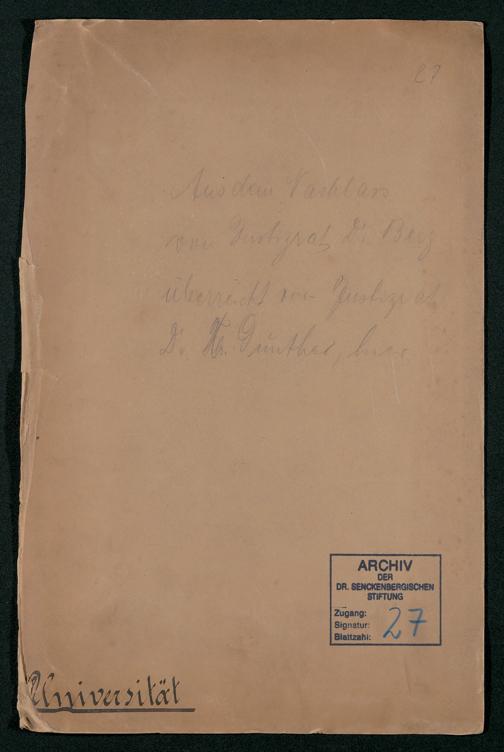 27
Aus dem Nachlass
von Justizrat Dr. Berg
überreicht von Justizrat
Dr. Günther, hier
ARCHIV
DER
DR. SENCKENBERGISCHEN
STIFTUNG
Zugang:
Signatur: 27
Blattzahl:
Universität